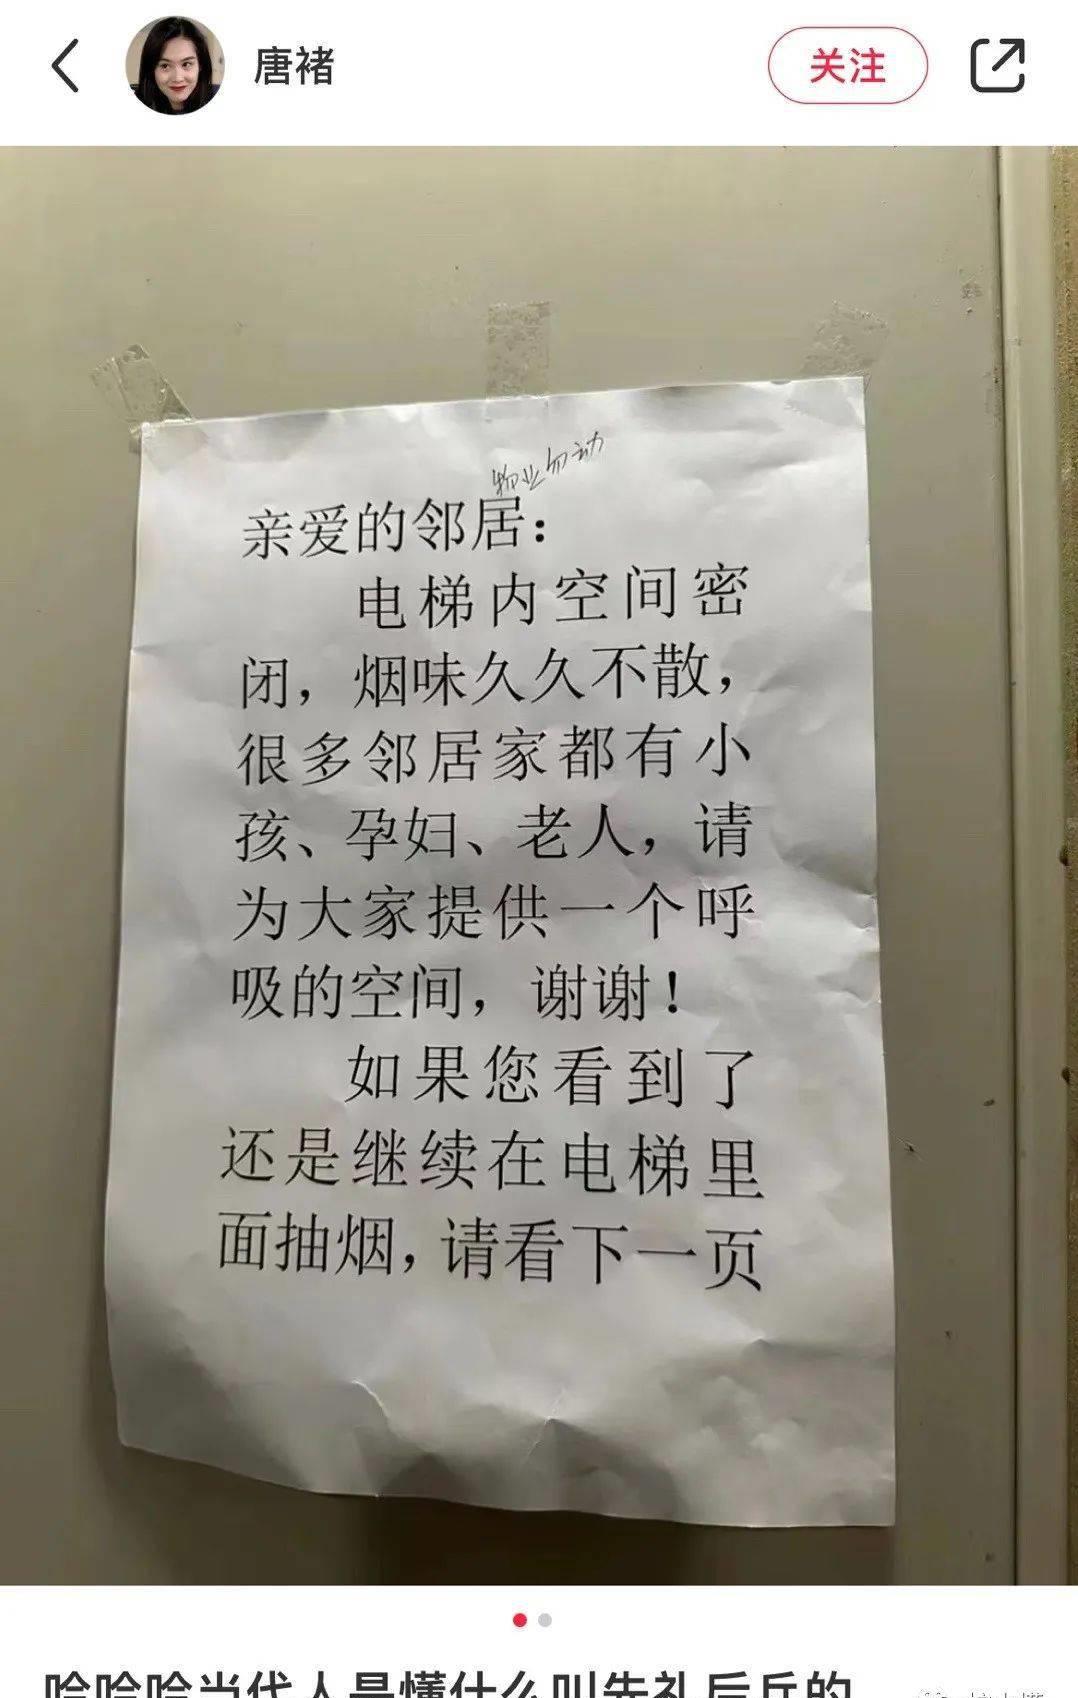 唐褚
关注
物业勿动
亲爱的邻居：
电梯内空间密
闭，烟味久久不散，
很多邻居家都有小
孩、孕妇、老人，请
为大家提供一个呼
吸的空间，谢谢！
如果您看到了
还是继续在电梯里
面抽烟，请看下一页
哈哈哈当代人是懂什么叫先礼后兵的